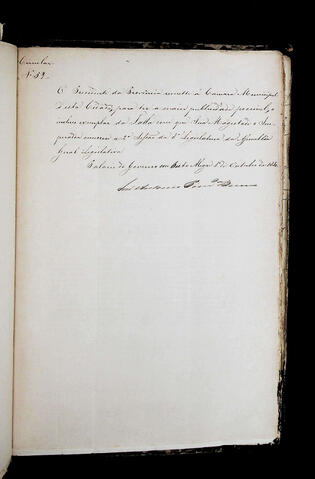 Circular
Nº 52
O Presidente da Provincia remette á Camara Municipal
desta Cidade, para ter a maior publicidade possivel, o
incluso exemplar da Falla com que Sua Magestade o Im-
perador encerrou a 2ª Sessão da Legislatura da Assemblea
Geral Legislativa
Palacio do Governo em Porto Alegre 1º de Outubro de